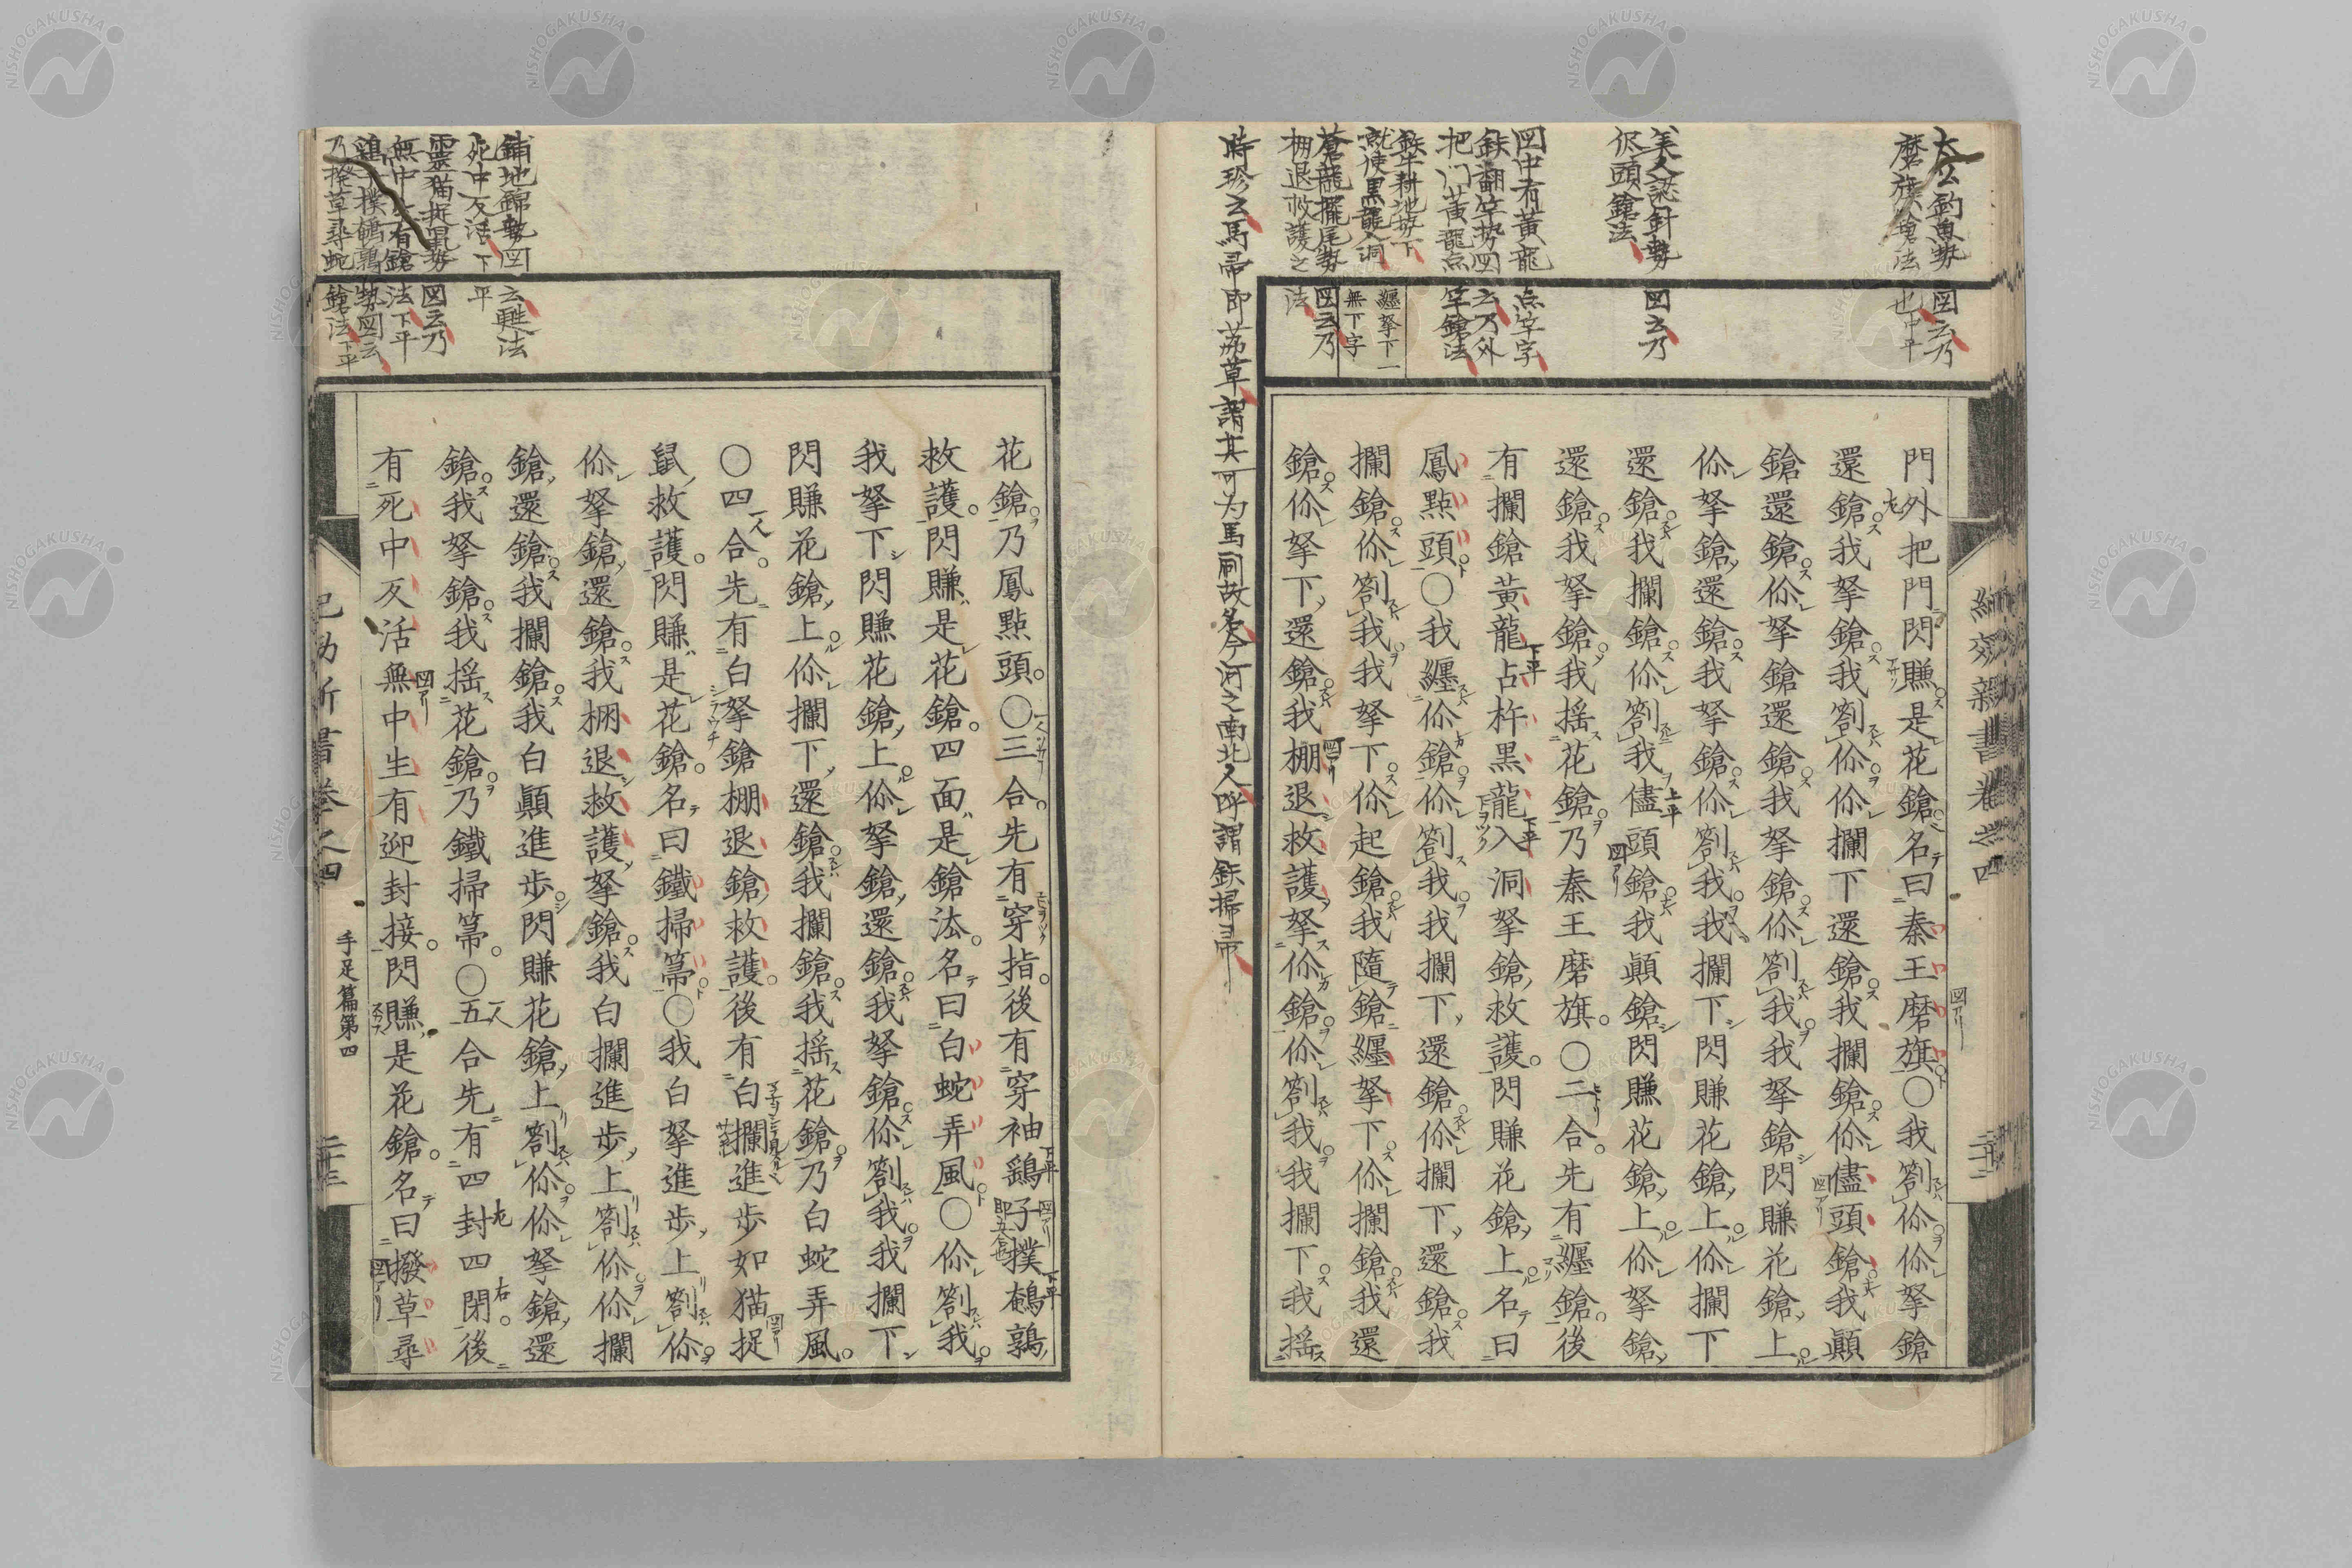 門外把門閃賺是花鎗名曰秦王磨旗○我劄伱伱拏鎗
還鎗我拏鎗我劄伱伱攔下還鎗我攔鎗伱儘頭鎗我顚
鎗還鎗伱拏鎗還鎗我拏鎗伱劄我我拏鎗閃賺花鎗上
伱拏鎗還鎗我拏鎗伱劄我我攔下閃賺花鎗上伱攔下
還鎗我攔鎗伱劄我儘頭鎗我顚鎗閃賺花鎗上伱拏鎗
還鎗我拏鎗我搖花鎗乃秦王磨旗○二合先有纏鎗後
有攔鎗黃龍占杵黑龍入洞拏鎗救護閃賺花鎗上名曰
鳳點頭○我纏伱鎗伱劄我我攔下還鎗伱攔下還鎗我
攔鎗伱劄我我拏下伱起鎗我隨鎗纏拏下伱攔鎗我還
鎗伱拏下還鎗我棚退救護拏伱鎗伱劄我我攔下我搖
纏拏下一
無下字
大公釣魚勢図云乃
磨旗鎗法也中平
美人認針勢図云乃
図中有黃龍点竿字
鉄翻竿勢図云乃外
把门黃龍点竿鎗法
鉄牛耕地勢下
就使黑龍入洞
蒼龍擺尾勢図云乃
棚退救護之法
時珍云馬帚即茘草謂其可为馬刷故名今河之南北人呼謂鉄掃帚
紀效新書卷之四
花鎗乃鳳點頭○三合先有穿指後有穿袖鷂子撲鵪鶉
救護閃賺是花鎗四面是鎗法名曰白蛇弄風○伱劄我
我拏下閃賺花鎗上伱拏鎗還鎗我拏鎗伱劄我我攔下
閃賺花鎗上伱攔下還鎗我攔鎗我搖花鎗乃白蛇弄風
○四合先有白拏鎗棚退鎗救護後有白攔進步如猫捉
鼠救護閃賺是花鎗名曰鐵掃箒○我白拏進步上劄伱
伱拏鎗還鎗我棚退救護拏鎗我白攔進步上劄伱伱攔
鎗還鎗我攔鎗我白顚進步閃賺花鎗上劄伱伱拏鎗還
鎗我拏鎗我搖花鎗乃鐵掃箒○五合先有四封四閉後
有死中反活無中生有迎封接閃賺是花鎗名曰撥草尋
鋪地錦勢図云甦法
死中反活下平
靈猫捉鼠勢図云乃
無中生有鎗法下平
乃撥草尋蛇鎗法下平
手足篇第四
二十三